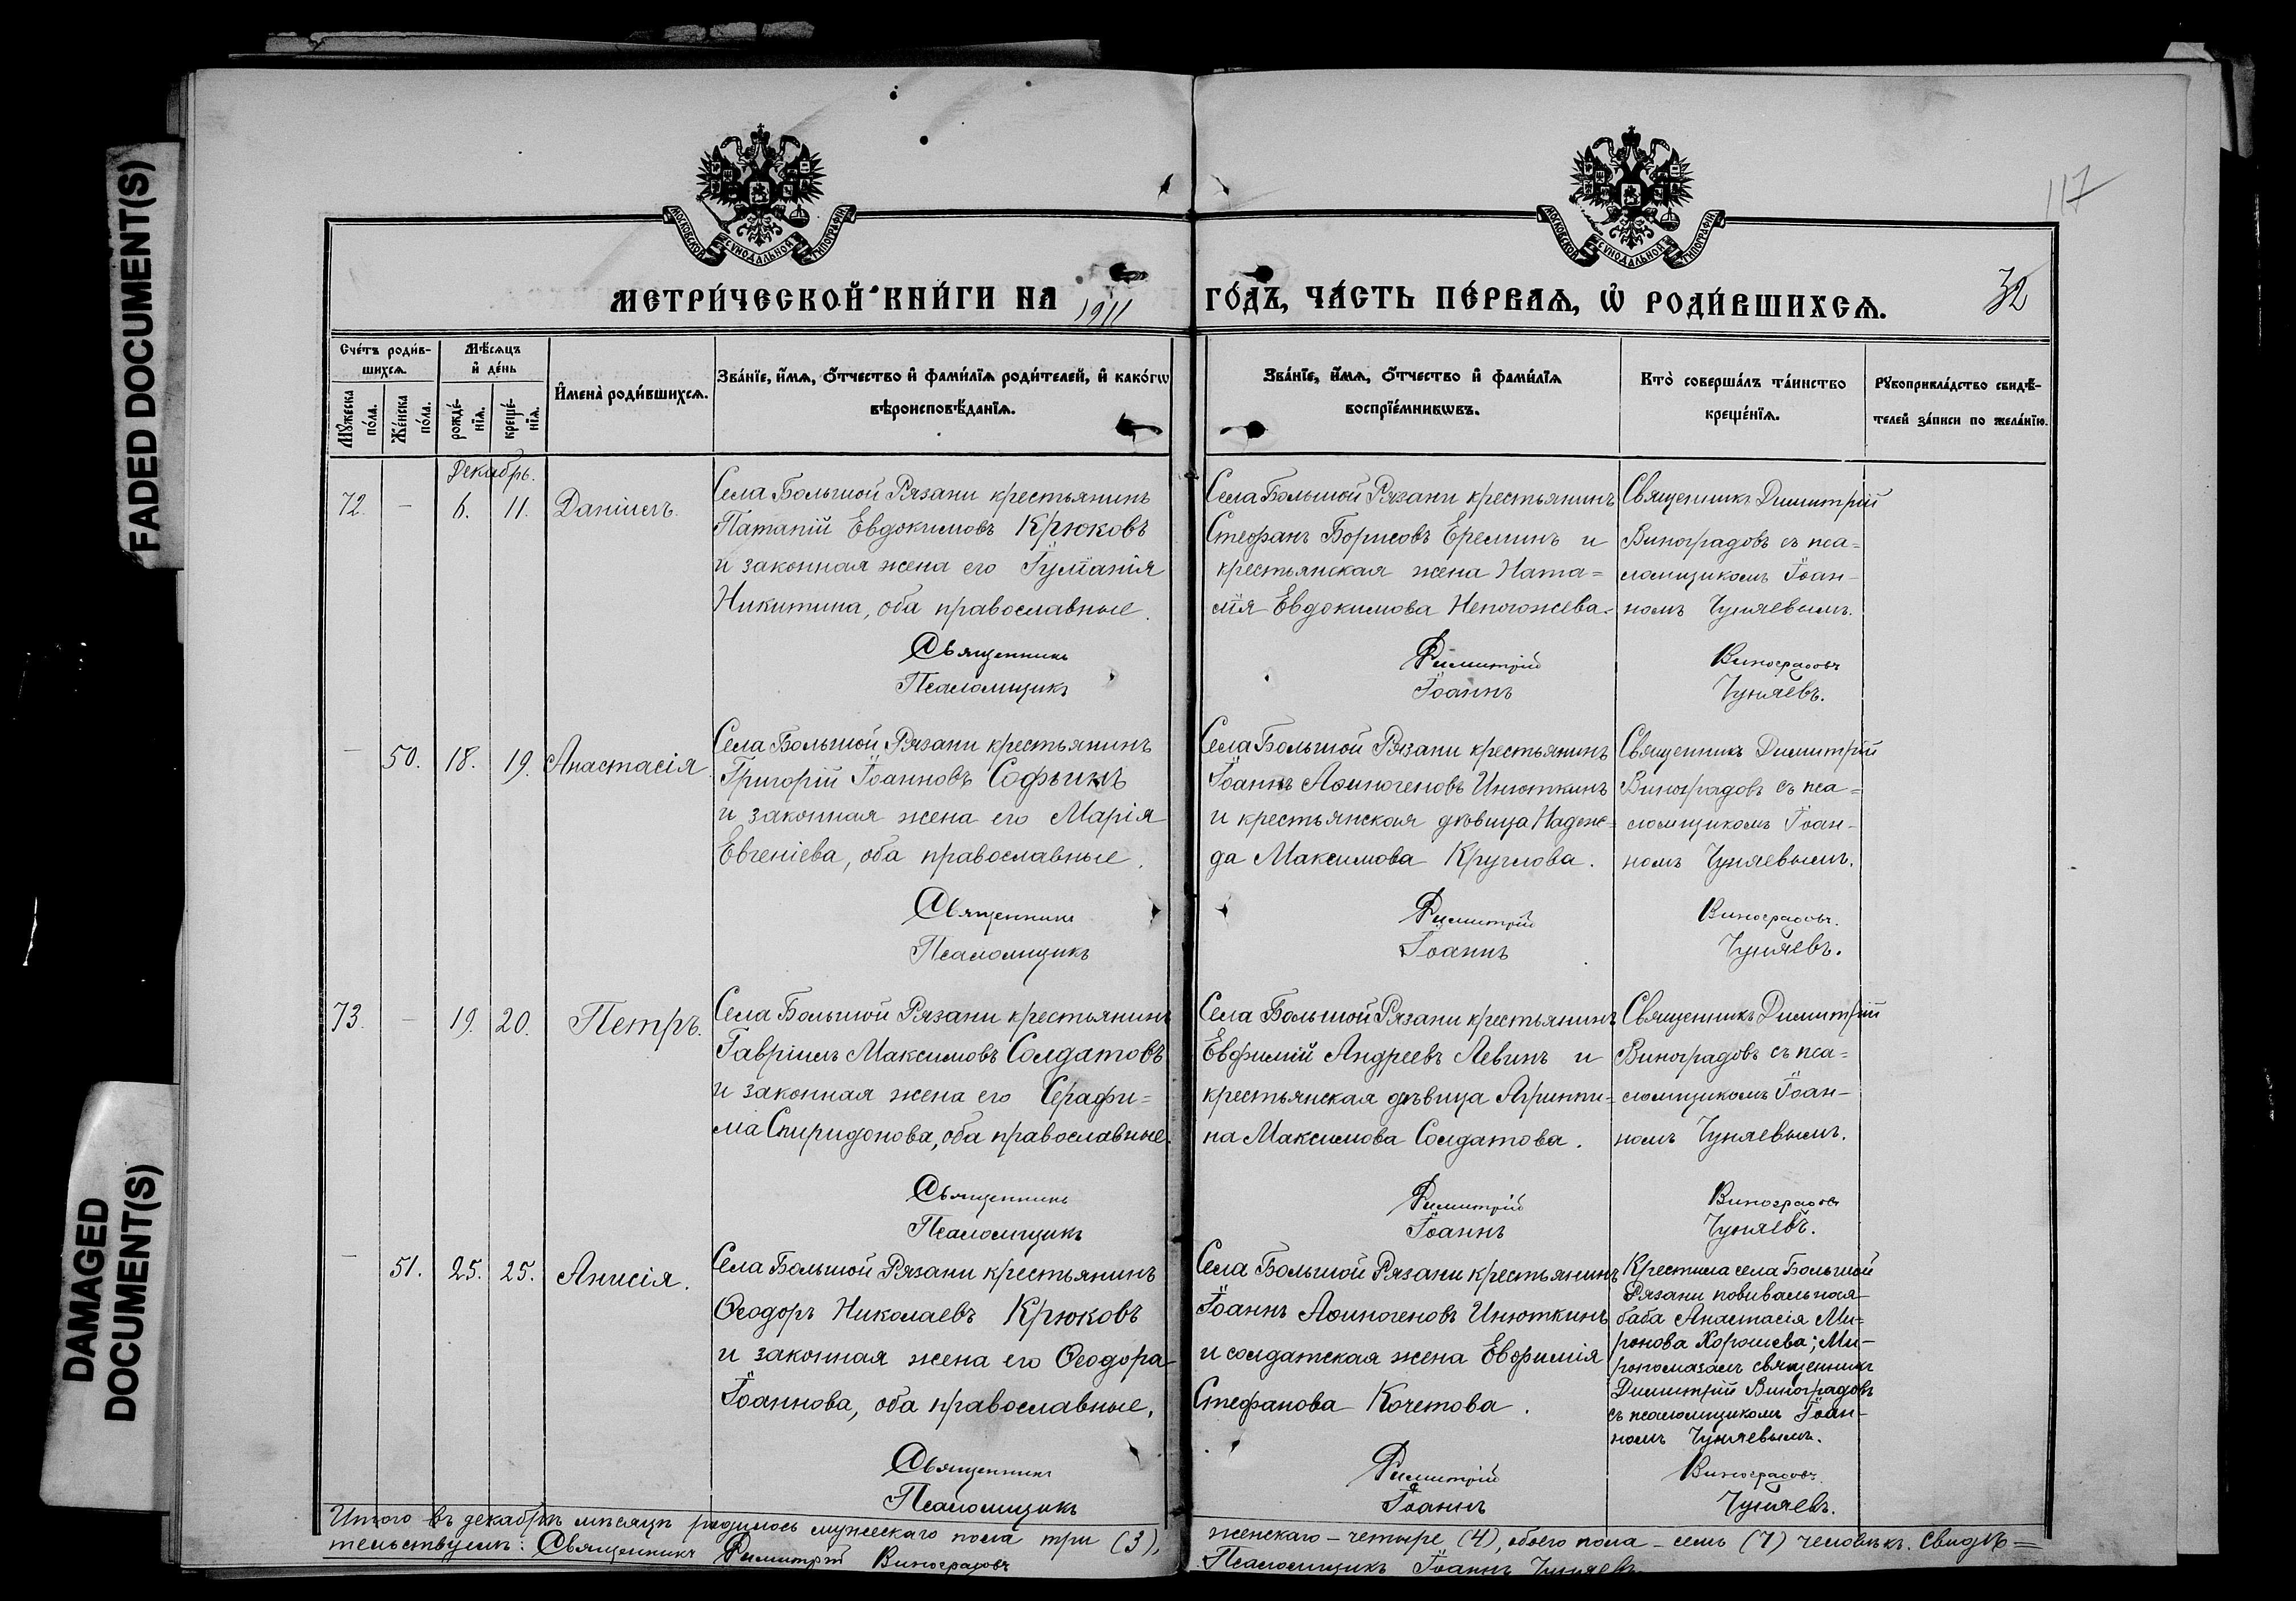 FADED DOCUMENT(S)
DAMAGED
DOCUMENT(S)
МОСКОВСКОЙ СѴНОДАЛЬНОЙ ТИПОГРАФІИ
МОСКОВСКОЙ СѴНОДАЛЬНОЙ ТИПОГРАФІИ
117
32
МЕТРИ́ЧЕСКОЙ КНИ́ГИ НА 1911 ГО́ДЪ, ЧА́СТЬ ПЕ́РВАѦ, Ѡ҆ РОДИ́ВШИХСѦ.
Сче́тъ роди́в-
шихсѧ.
Мꙋжеска по́ла.
Же́нска по́ла.
Мѣ́сѧцъ
и҆ де́нь
рожде́-
нїѧ.
креще́-
нїѧ.
И҆мена̀ роди́вшихсѧ.
Зва́нїе, и҆́мѧ, ѻ҆́тчество и҆ фами́лїѧ роди́телей, и҆ како́гѡ
вѣроисповѣ́данїѧ.
Зва́нїе, и҆́мѧ, ѻ҆́тчество и҆ фами́лїѧ
воспрїе́мникѡвъ.
Кто̀ соверша́лъ та́инство
креще́нїѧ.
Рꙋкоприкла́дство свидѣ́-
телей за́писи по жела́нїю.
Декабрь.
72. – 6. 11. Даніилъ.
Села Большой Рязани крестьянинъ
Патапій Евдокимовъ Крюковъ
и законная жена его Іуліанія
Никитина, оба православные.
Села Большой Рязани крестьянинъ
Стефанъ Борисовъ Ереминъ и
крестьянская жена Ната=
лія Евдокимова Непогожева.
Священникъ Димитрій
Виноградовъ съ пса=
ломщикомъ Іоан-
номъ Чуняевымъ.
Священникъ Димитрій Виноградовъ
Псаломщикъ Іоаннъ Чуняевъ.
– 50. 18. 19. Анастасія.
Села Большой Рязани крестьянинъ
Григорій Іоанновъ Софьинъ
и законная жена его Марія
Евгеніева, оба православные.
Села Большой Рязани крестьянинъ
Іоаннъ Аѳиногеновъ Инюткинъ
и крестьянская дѣвица Надеж=
да Максимова Круглова.
Священникъ Димитрій
Виноградовъ съ пса=
ломщикомъ Іоан-
номъ Чуняевымъ.
Священникъ Димитрій Виноградовъ.
Псаломщикъ Іоаннъ Чуняевъ.
73. – 19. 20. Петръ.
Села Большой Рязани крестьянинъ
Гавріилъ Максимовъ Солдатовъ
и законная жена его Серафи=
ма Спиридонова, оба православные.
Села Большой Рязани крестьянинъ
Евфимій Андреевъ Левинъ и
крестьянская дѣвица Агриппи=
на Максимова Солдатова.
Священникъ Димитрій
Виноградовъ съ пса=
ломщикомъ Іоан-
номъ Чуняевымъ.
Священникъ Димитрій Виноградовъ
Псаломщикъ Іоаннъ Чуняевъ.
– 51. 25. 25. Анисія.
Села Большой Рязани крестьянинъ
Ѳеодоръ Николаевъ Крюковъ
и законная жена его Ѳеодора
Іоаннова, оба православные.
Села Большой Рязани крестьянинъ
Іоаннъ Аѳиногеновъ Инюткинъ
и солдатская жена Евфимія
Стефанова Кочетова.
Крестила села Большой
Рязани повивальная
баба Анастасія Ми=
ронова Хорошева; Ми-
ропомазалъ священникъ
Димитрій Виноградовъ
съ псаломщикомъ Іоан-
номъ Чуняевымъ.
Священникъ Димитрій Виноградовъ.
Псаломщикъ Іоаннъ Чуняевъ.
Итого въ декабрѣ мѣсяцѣ родилось мужескаго пола три (3), женскаго – четыре (4), обоего пола – семь (7) человѣкъ. Свидѣ=
тельствуемъ: Священникъ Димитрій Виноградовъ Псаломщикъ Іоаннъ Чуняевъ.